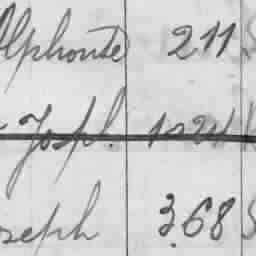 Alphonse 211 S
Josph. 1024
oseph 368 S